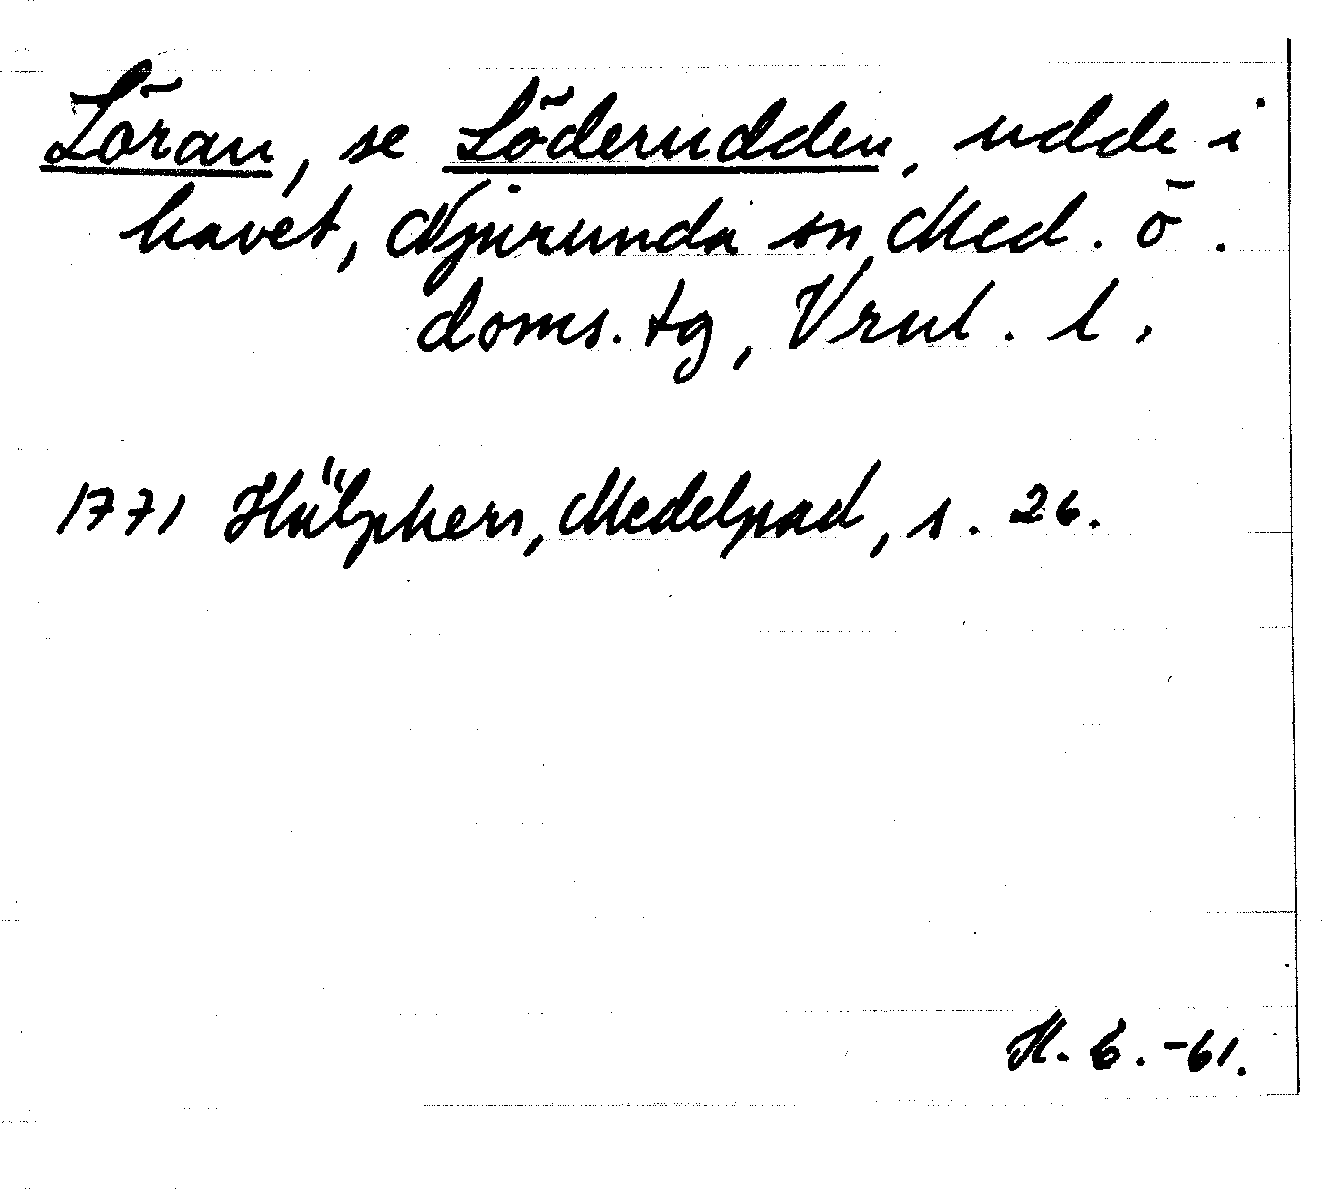 Löran, se Söderudden, udde i
havet, Njurunda sn, Med. ö.
doms. tg, Vrnl. l.
1771 Hülphers, Medelpad, s. 26.
H. G. -61.